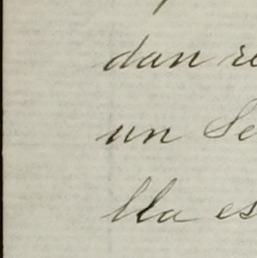 dan re
un Se
lla es